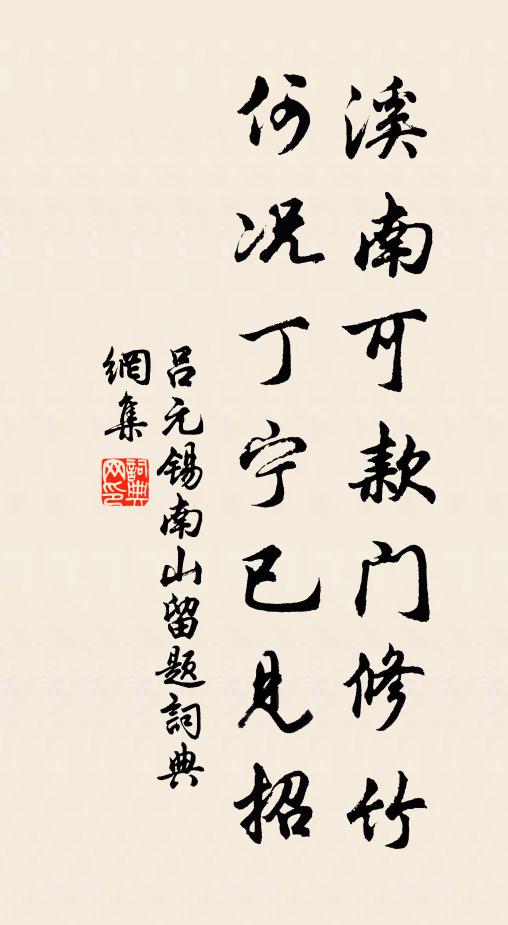 溪南可款门修竹
何况丁宁已见招
吕元锡南山留题詞典
網集
詞典
网印